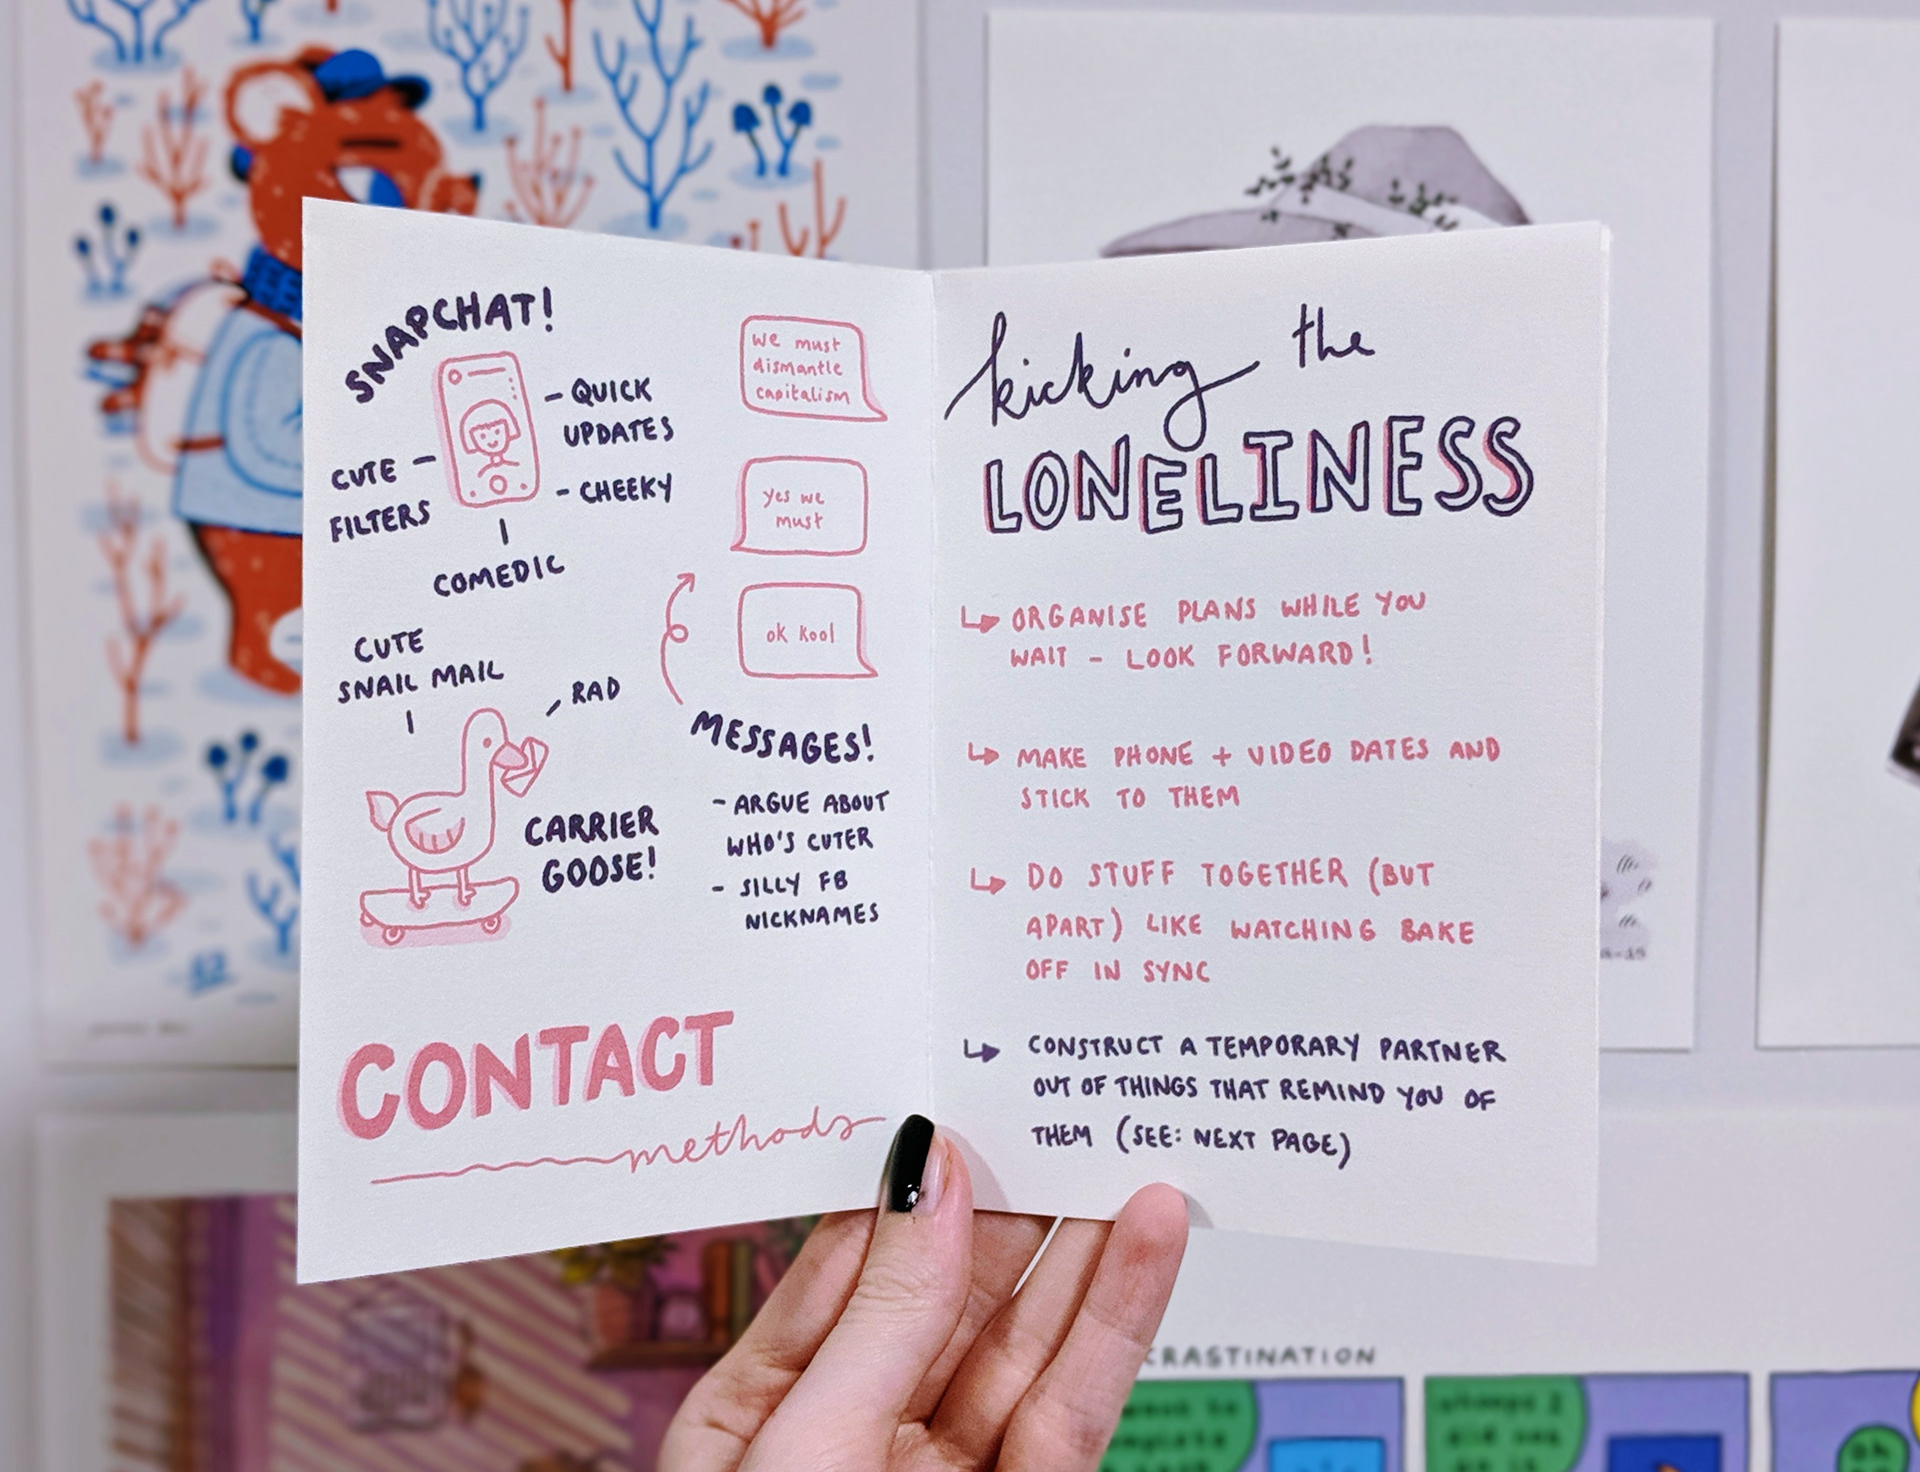 SNAPCHAT!
- QUICK
UPDATES
CUTE -
FILTERS
- CHEEKY
COMEDIC
we must
dismantle
capitalism
yes we
must
ok kool
CUTE
SNAIL MAIL
RAD
CARRIER
GOOSE!
MESSAGES!
- ARGUE ABOUT
WHO'S CUTER
- SILLY FB
NICKNAMES
CONTACT
methods
kicking the
LONELINESS
ORGANISE PLANS WHILE YOU
WAIT - LOOK FORWARD!
MAKE PHONE + VIDEO DATES AND
STICK TO THEM
DO STUFF TOGETHER (BUT
APART) LIKE WATCHING BAKE
OFF IN SYNC
CONSTRUCT A TEMPORARY PARTNER
OUT OF THINGS THAT REMIND YOU OF
THEM (SEE: NEXT PAGE)
CRASTINATION